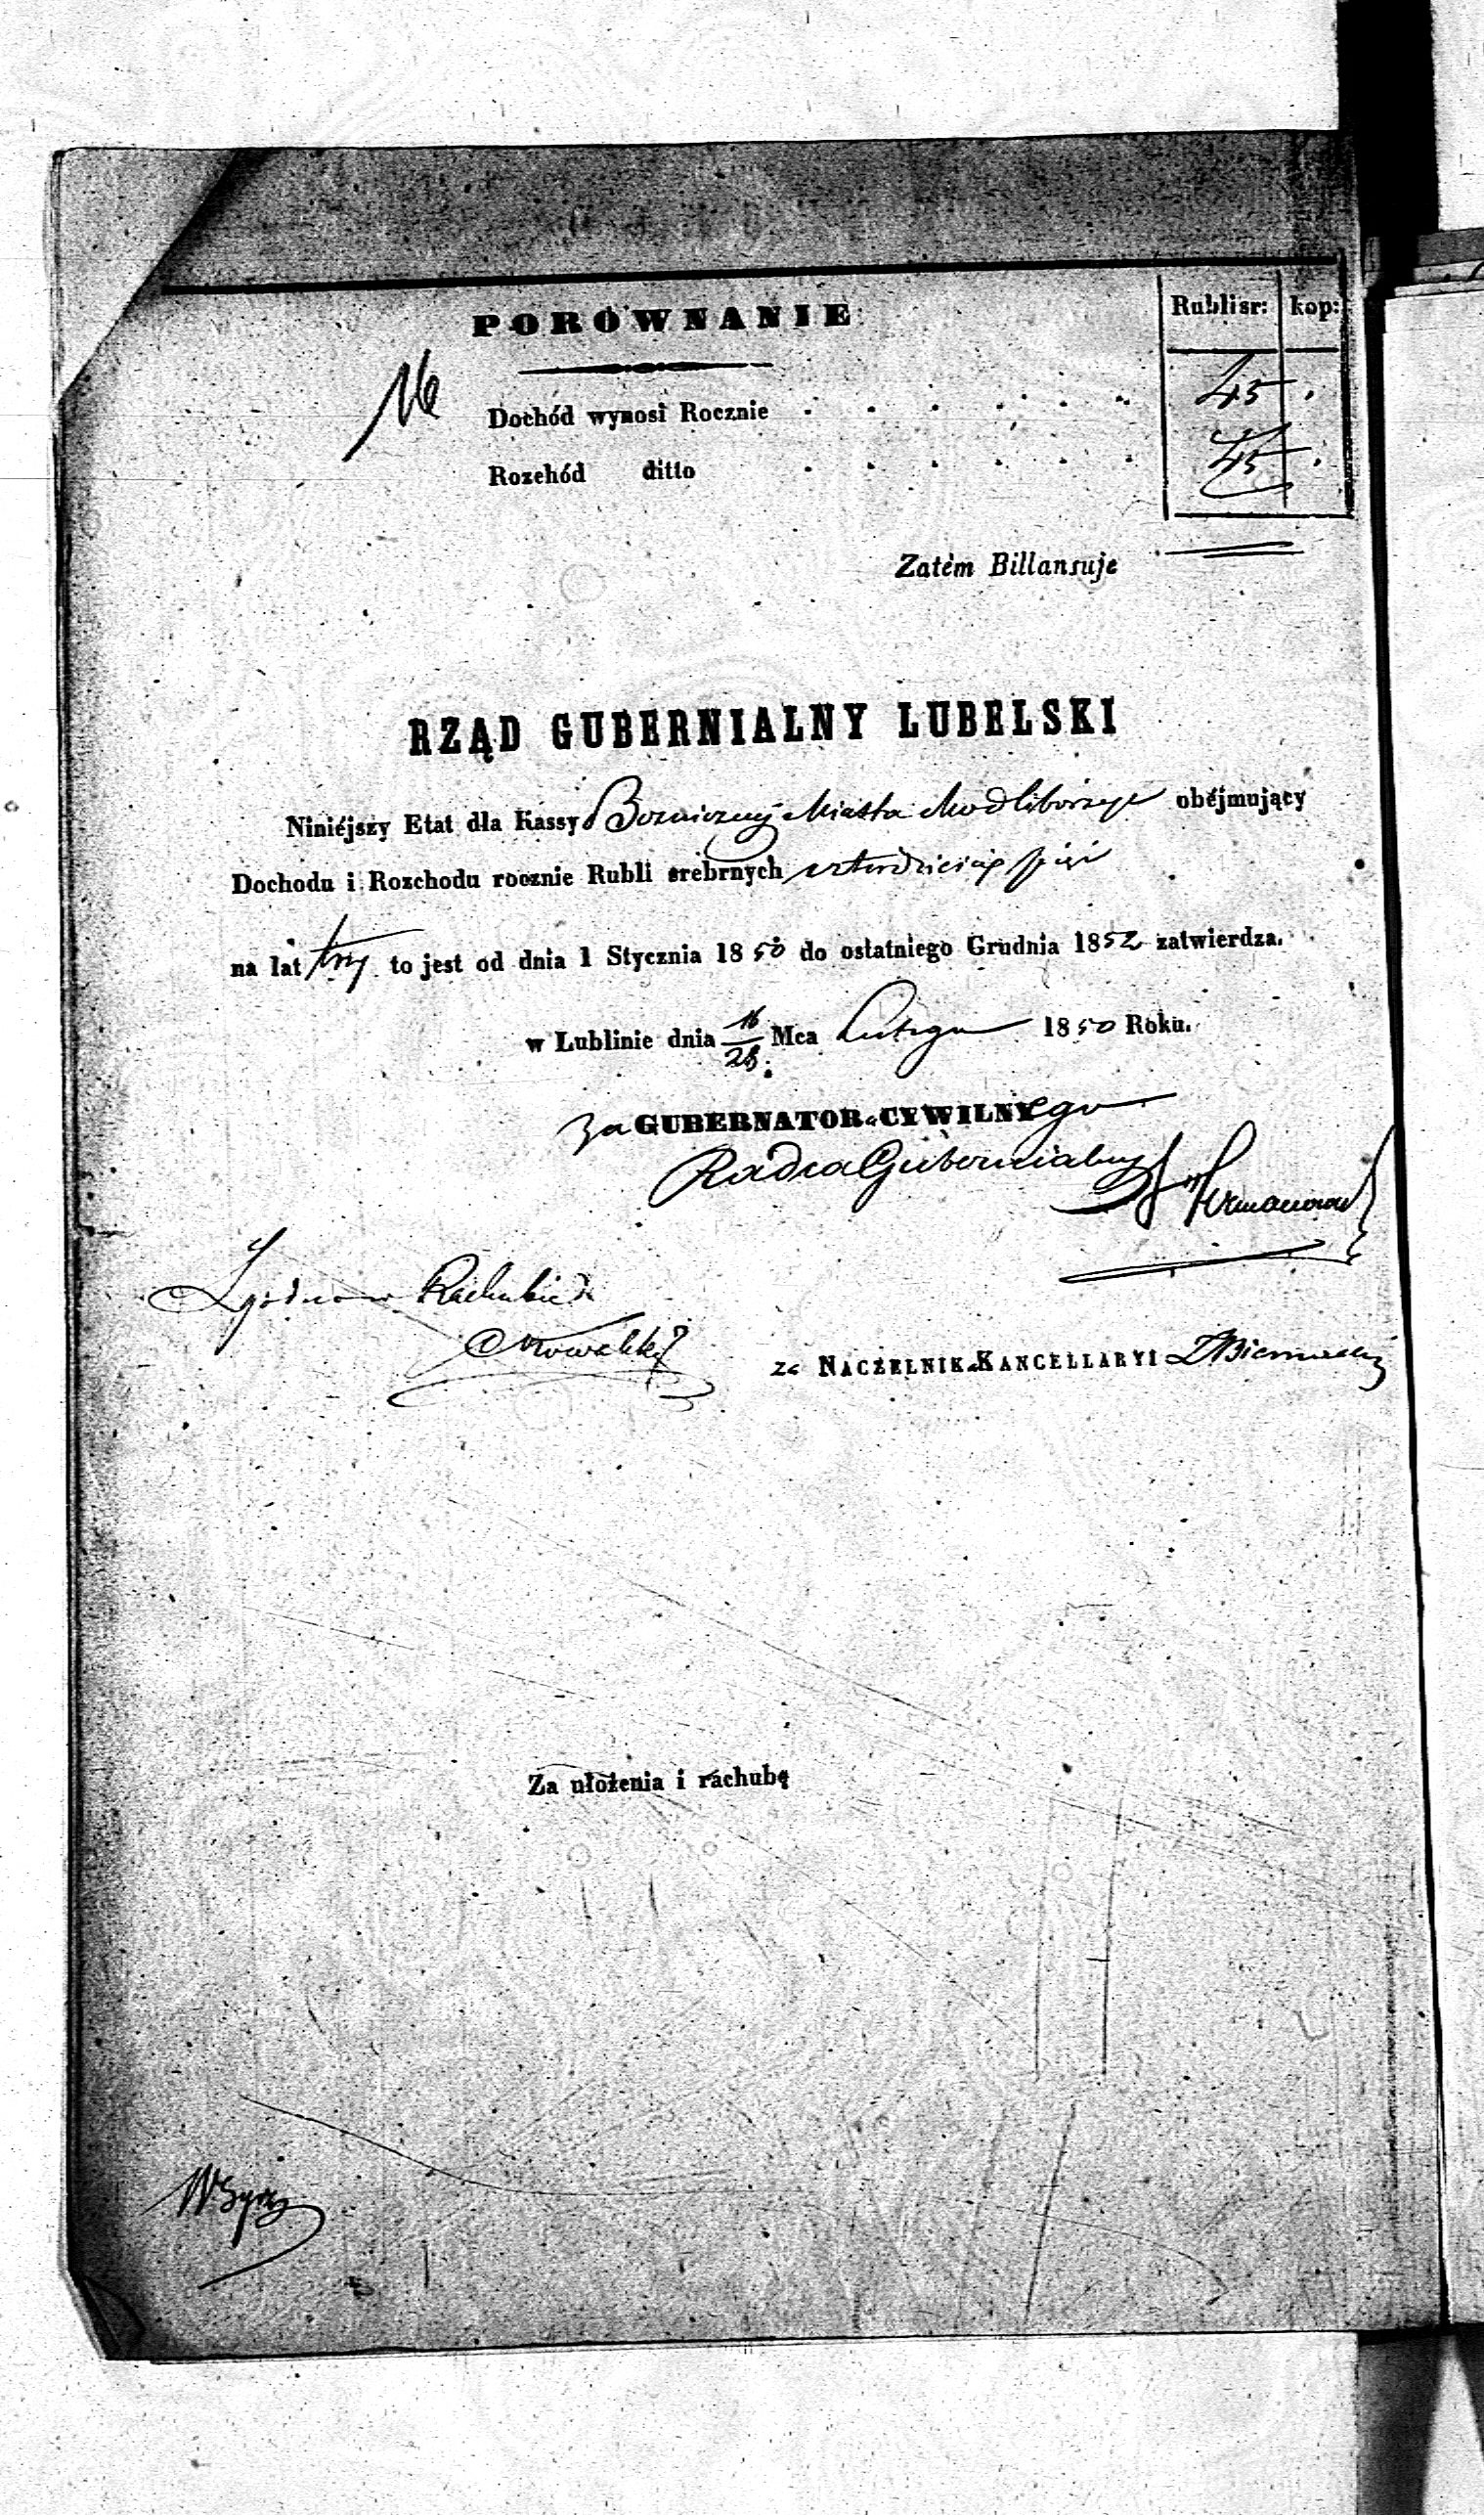 PORÓWNANIE
Rublisr: kop:
16
Dochód wynosi Rocznie . . . . . . 45 .
Rozchód ditto . . . . . . 45 .
Zatém Billansuje
RZĄD GUBERNIALNY LUBELSKI
Niniéjszy Etat dla Kassy Bozniczny Miasta Modliborzyc obéjmujący
Dochodu i Rozchodu rocznie Rubli srebrnych czterdzieści pięć
na lat trzy to jest od dnia 1 Stycznia 1850 do ostatniego Grudnia 1852 zatwierdza.
w Lublinie dnia 16/28 Mca Lutego 1850 Roku.
za GUBERNATORA CYWILNEgo
Radca Gubernialny
Zgodno w Rachubie
Nowalski
za NACZELNIKA KANCELLARYI
Za ułożenia i rachubę